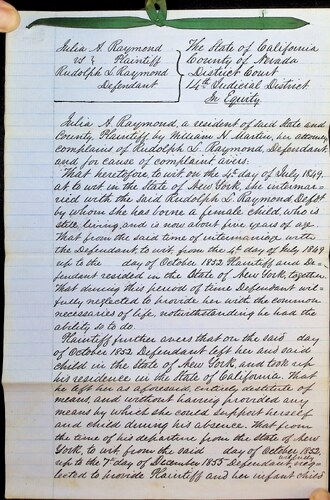 Julia A. Raymond
vs Plaintiff
Rudolph L. Raymond
Defendant
The State of California
County of Nevada
District Court
14th Judicial District
In Equity.
Julia A. Raymond, a resident of said State and
County, Plaintiff by William H. Martin, her attorney
complains of Rudolph L. Raymond, Defendant,
and for cause of complaint avers.
That heretofore, to wit on the 4th day of July 1849,
at to wit in the State of New York, she intermar-
ried with the said Rudolph L. Raymond, Deft
by whom she has borne a female child, who is
still living, and is now about five years of age.
That from the said time of intermariage with
the Defendant to wit, from the 4th day of July 1849
up to the day of October 1852 Plaintiff and De-
fendant resided in the State of New York together.
That during this period of time Defendant wil-
fully neglected to provide her with the common
necessaries of life, notwithstanding he had the
ability so to do.
Plaintiff further avers that on the said day
of October 1852 Defendant left her and said
child in the State of New York, and took up
his residence in the State of California. That
he left her as aforesaid, entirely destitute of
means, and without having provided any
means by which she could support herself
and child during his absence. That from
the time of his departure from the State of New
York, to wit, from the said day of October 1852,
up to the 7th day of December 1855 Defendant, wilfully neg-
lected to provide Plaintiff and her infant child